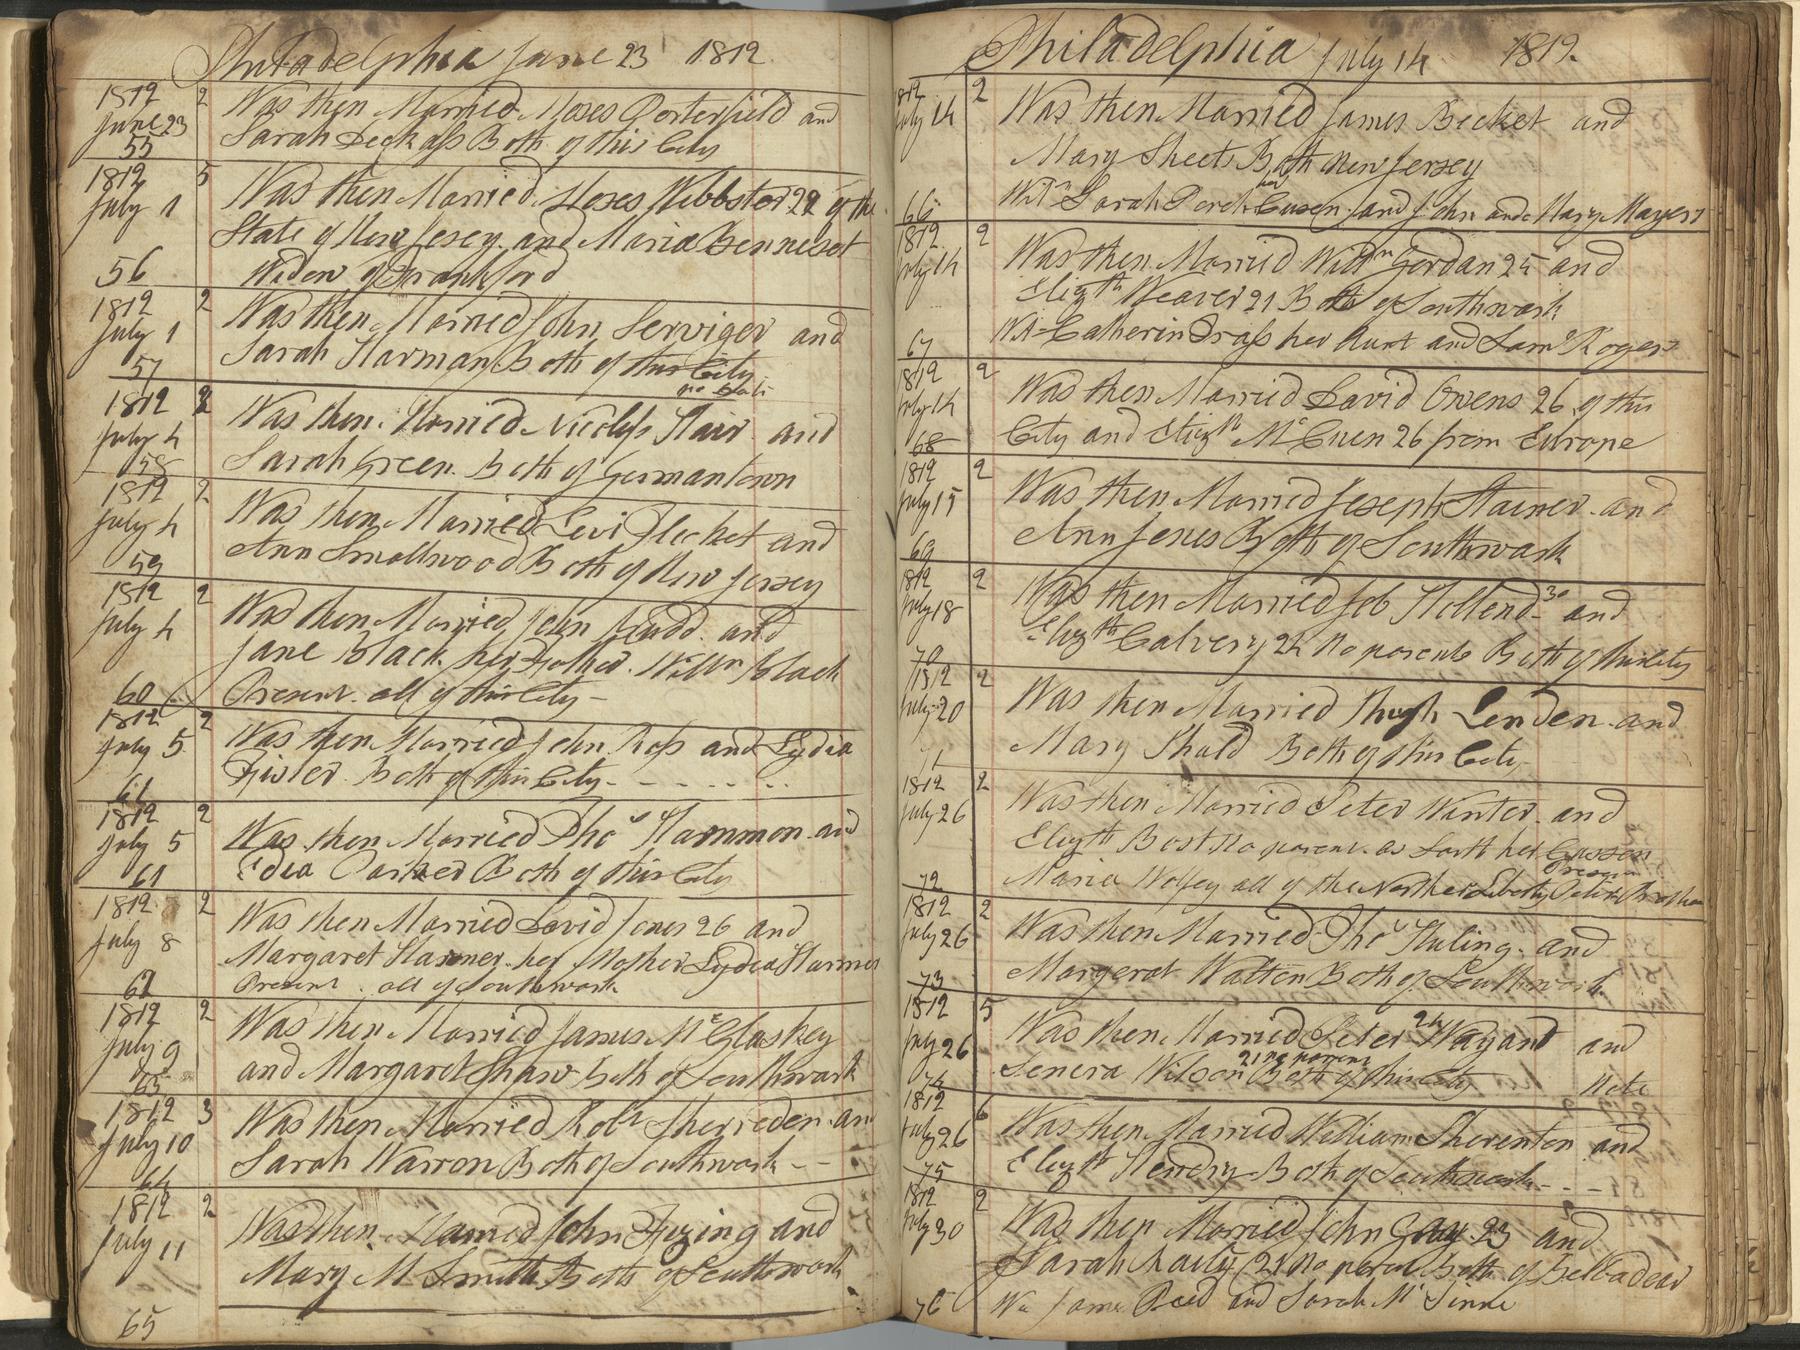 Philadelphia June 23 1812
1812 2 Was then Married Moses Porterfield and
June 23 Sarah Both of this City
55
1812 5 Was then Married Moses Webbster 22 of the
July 1 State of New Jersey and Maria
56 Widow of Frankford
1812 2 Was then Married John Serviger and
July 1 Sarah Harman Both of this City
57
1812 2 Was then Married Hair and
July 4 Sarah Green Both of Germantown
58
1812 2 Was then Married Levi and
July 4 Ann Smallwood Both of New Jersey
59
1812 2 Was then Married John Judd and
July 4 Jane Black her Father Willm Black
60 Present all of this City
1812 2 Was then Married John Ross and Lydia
July 5 Both of this City
61
1812 2 Was then Married Thos Hammon and
July 5 Edia Parker Both of this City
61
1812 2 Was then Married David Jones 26 and
July 8 Margaret Harmer her Mother Lydia Harmer
62 Present all of Southwark
1812 2 Was then Married James McGlaskey
July 9 and Margaret Shaw both of Southwark
63
1812 3 Was then Married Robt Sherreden and
July 10 Sarah Warron Both of Southwark
64
1812 2 Was then Married John and
July 11 Mary M Smith Both of Southwark
65
Philadelphia July 14 1812.
1812 2 Was then Married James Becket and
July 14 Mary Sheets Both New Jersey
66 Witn Sarah her Cusen and John and Mary Mayers
1812 2 Was then Married Willm Gordan 25 and
July 14 Elizth Weaver 21 Both of Southwark
67 Wit Catherin her Aunt and Saml Rogers
1812 2 Was then Married David Owens 26 of this
July 14 City and Elizth McCuen 26 from Europe
68
1812 2 Was then Married Joseph Stainer and
July 15 Ann Jones Both of Southwark
69
1812 2 Was then Married Job Hollend 30 and
July 18 Elizth Calvery 24 No parents Both of this City
70
1812 2 Was then Married Hugh Lenden and
July 20 Mary Shald Both of this City
71
1812 2 Was then Married Peter Winter and
July 26 Elizth Bost No parent as Saith her Cussen
Present
72 Maria Wolfey all of the Northern Liberty
1812 2 Was then Married Thos Huling and
July 26 Margerat Watten Both of Southwark
73
1812 5 Was then Married Peter 24 Wayant and
July 26 Senera Wilson 21 no parent Both of this City
74 Note
1812 6 Was then Married William Sherenton and
July 26 Elizth Hendry Both of Southwark
75
1812 2 Was then Married John Gray 23 and
July 30 Sarah 21 No parent Both of
76 Wi James Reed and Sarah